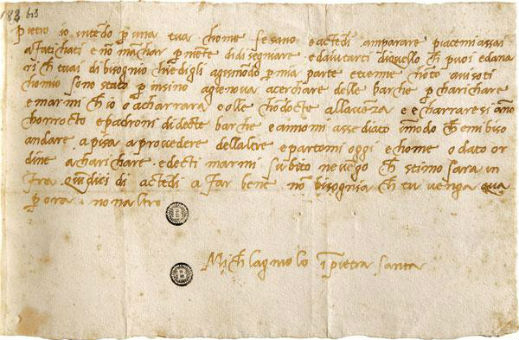 188 bis
Pietro io intēdo p una tua chome se sano e actēdi amparare piacemi assai
afatichati e nō māchar p niēte didisegniare edaiutarti diquello ch puoi edana
ri ch tuai di bisognio chiedigli agismōdo p mia parte etienne chōto
sono stato p insino agienova acierchare delle barche p charichare
emarmi chio o acharrara eolle chōdocte allavēza e echarraresi āno
chorrocto epadroni didecte barche eannomi assediato īmodo ch embiso
andare apisa aprovedere dellaltre epartomi oggi echome o dato or
dine acharichare edecti marmi subito nevēgo ch stimo sara in
fra quīdici di actēdi a far bene nō bisognia ch tu vēga qua
p ora nonaltro
B
B
Michelagniolo ī pietra santa